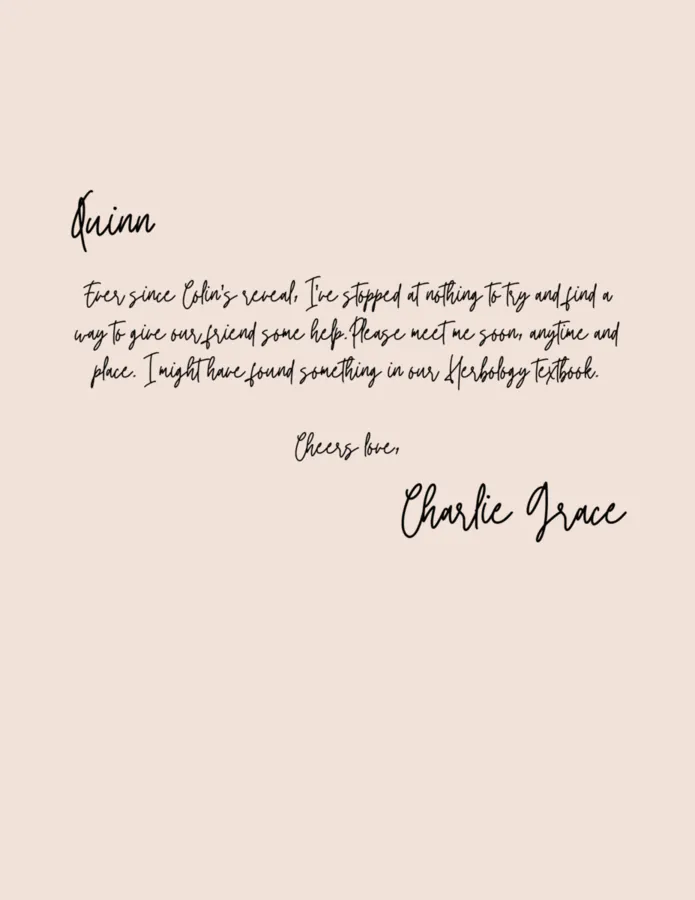 Quinn
Ever since Colin's reveal, I've stopped at nothing to try and find a
way to give our friend some help. Please meet me soon, anytime and
place. I might have found something in our Herbology textbook.
Cheers love,
Charlie Grace